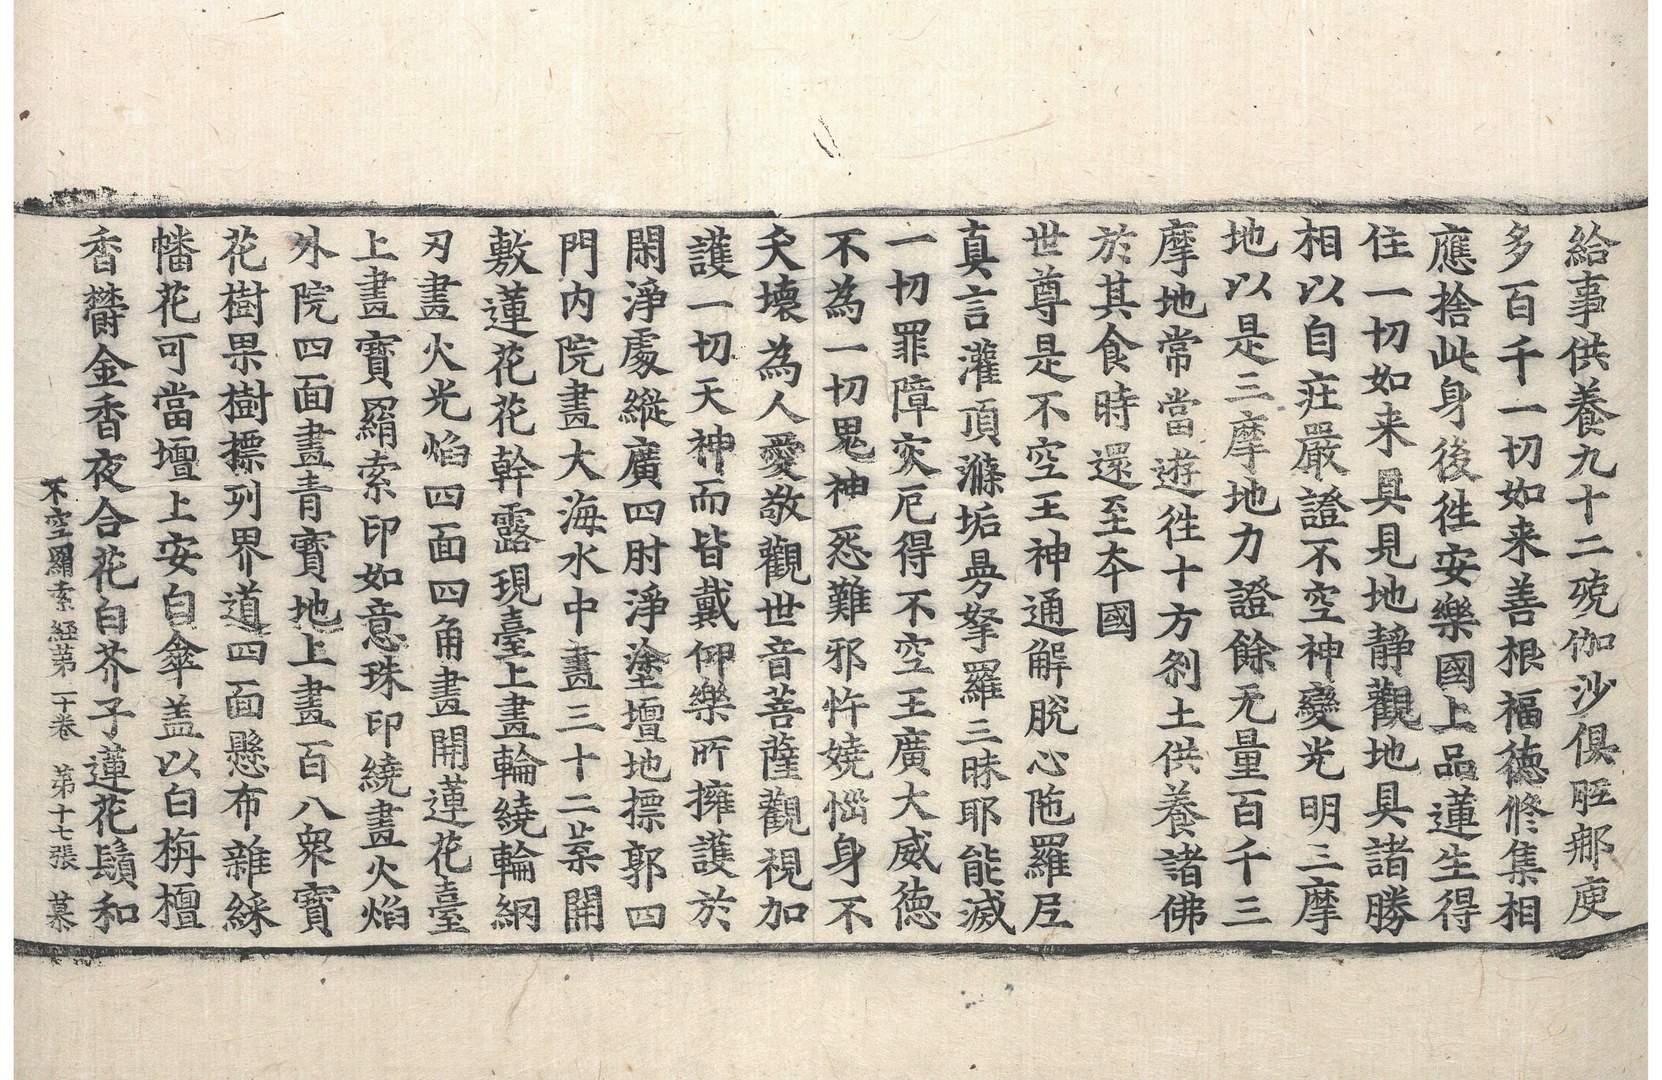 給事供養九十二殑伽沙俱胝那庾
多百千一切如来善根福德修集相
應捨此身後徃安樂國上品蓮生得
住一切如来具見地靜觀地具諸勝
相以自莊嚴證不空神變光明三摩
地以是三摩地力證餘无量百千三
摩地常當遊徃十方刹土供養諸佛
於其食時還至夲國
世尊是不空王神通解脫心陁羅尼
真言灌頂滌垢曼拏羅三昧耶能滅
一切罪障灾厄得不空王廣大威德
不為一切鬼神怨難邪忤嬈惱身不
夭壞為人愛敬觀世音菩薩觀視加
護一切天神而皆戴仰樂所擁護於
閑淨處縱廣四肘淨塗壇地標郭四
門内院畫大海水中畫三十二葉開
敷蓮花花幹露現臺上畫輪繞輪網
刃畫火光焰四面四角畫開蓮花臺
上畫寶羂索印如意珠印繞畫火焰
外院四面畫青寶地上畫百八衆寶
花樹果樹摽列界道四面懸布雜綵
幡花可當壇上安白傘盖以白栴檀
香欝金香夜合花白芥子蓮花鬚和
不空羂索經苐二十卷 苐十七張 慕